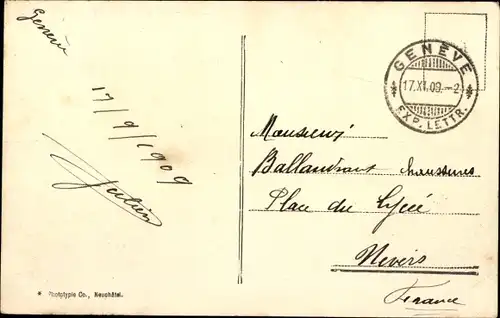 Genève
17/9/1909
Julien
* Phototypie Co., Neuchâtel.
GENÈVE
17.XI.09.-2
EXP. LETTR.
Monsieur
Ballandrant chaussures
Place du Lycée
Nevers
France